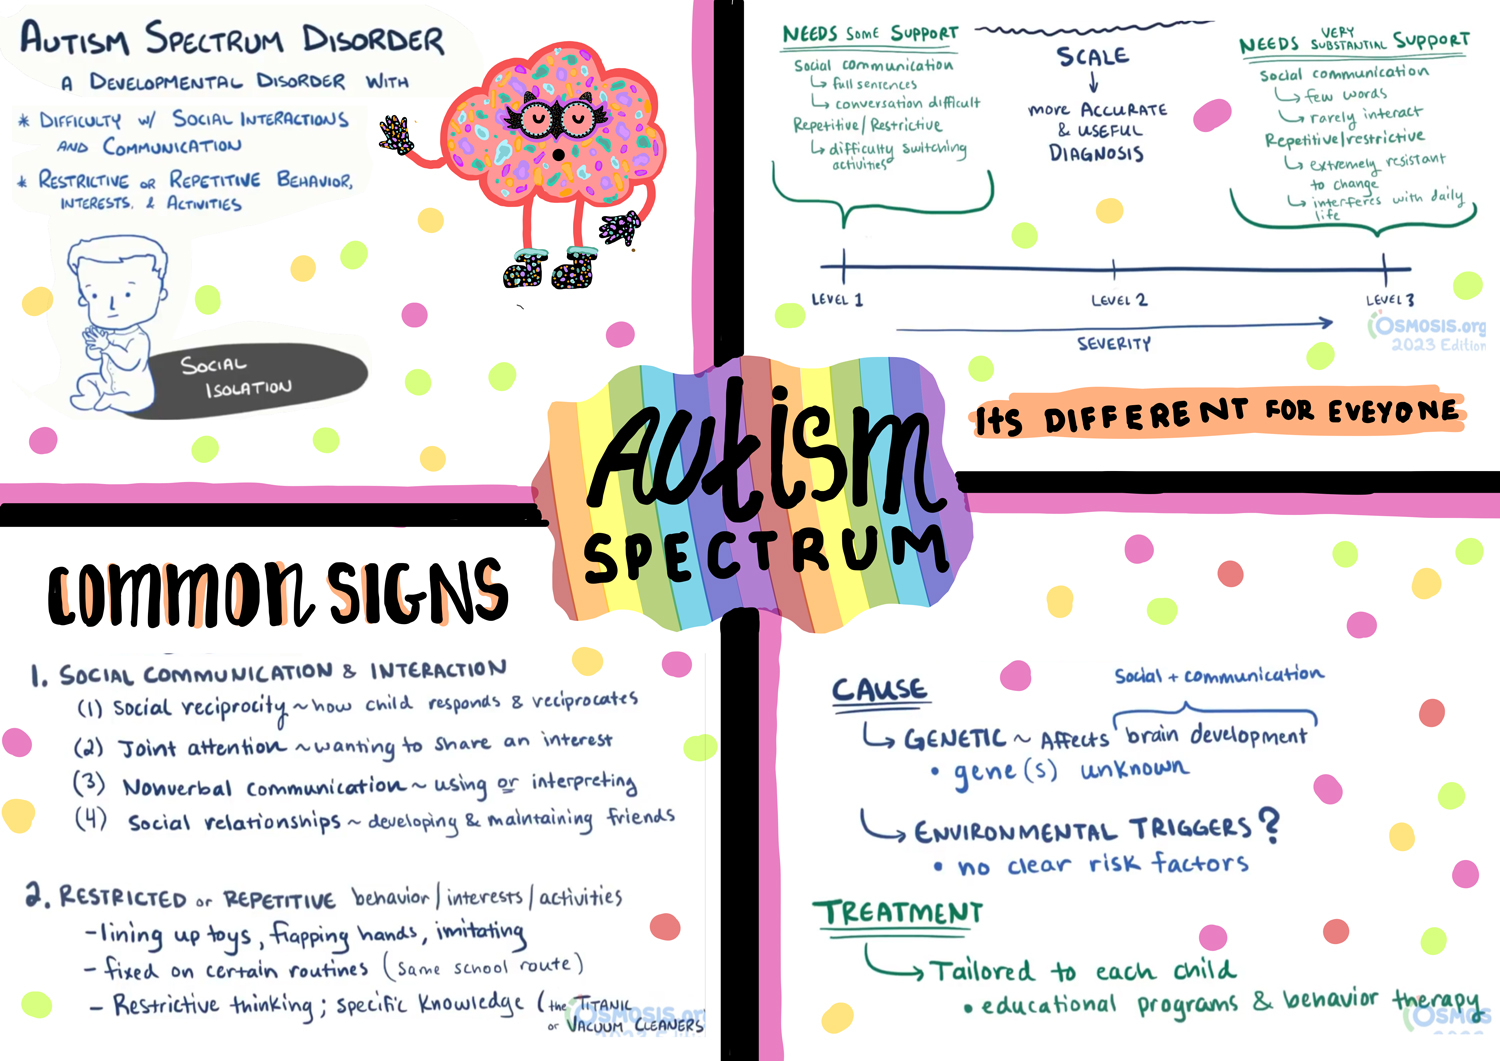 AUTISM SPECTRUM DISORDER
A DEVELOPMENTAL DISORDER WITH
* DIFFICULTY W/ SOCIAL INTERACTIONS
AND COMMUNICATION
* RESTRICTIVE OR REPETITIVE BEHAVIOR,
INTERESTS, & ACTIVITIES
SOCIAL
ISOLATION
NEEDS SOME SUPPORT
Social communication
↳ full sentences
↳ conversation difficult
Repetitive/Restrictive
↳ difficulty switching
activities
SCALE
↓
more ACCURATE
& USEFUL
DIAGNOSIS
NEEDS VERY SUBSTANTIAL SUPPORT
Social communication
↳ few words
↳ rarely interact
Repetitive/restrictive
↳ extremely resistant
to change
↳ interferes with daily
life
LEVEL 1
LEVEL 2
LEVEL 3
SEVERITY
OSMOSIS.org
2023 Edition
ItS DIFFERENT FOR EVEYONE
AUtiSm
SPECTRUM
COMMON SIGNS
1. SOCIAL COMMUNICATION & INTERACTION
(1) Social reciprocity ~ how child responds & reciprocates
(2) Joint attention ~ wanting to share an interest
(3) Nonverbal communication ~ using or interpreting
(4) Social relationships ~ developing & maintaining friends
2. RESTRICTED or REPETITIVE behavior/interests/activities
- lining up toys, flapping hands, imitating
- fixed on certain routines (same school route)
- Restrictive thinking; specific knowledge (the TITANIC
or VACUUM CLEANERS
OSMOSIS.or
Social + communication
CAUSE
↳ GENETIC ~ Affects brain development
• gene(s) unknown
↳ ENVIRONMENTAL TRIGGERS?
• no clear risk factors
TREATMENT
↳ Tailored to each child
• educational programs & behavior therapy
OSMOS